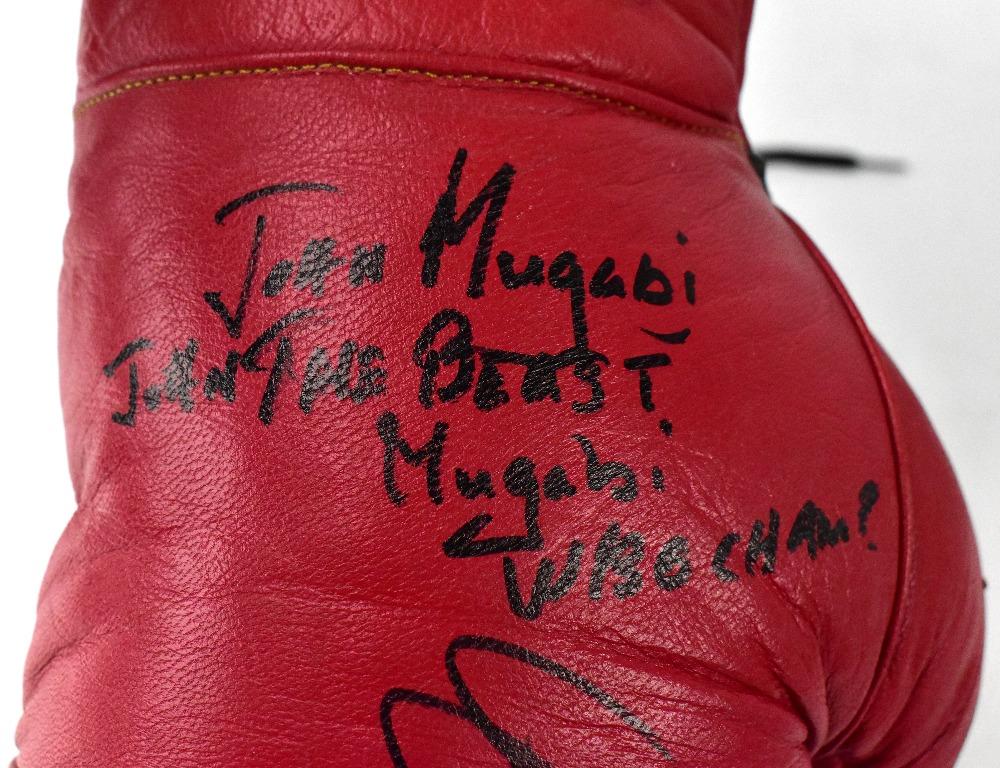 John Mugabi
JOHN THE BEAST
Mugabi
WBC CHAMP